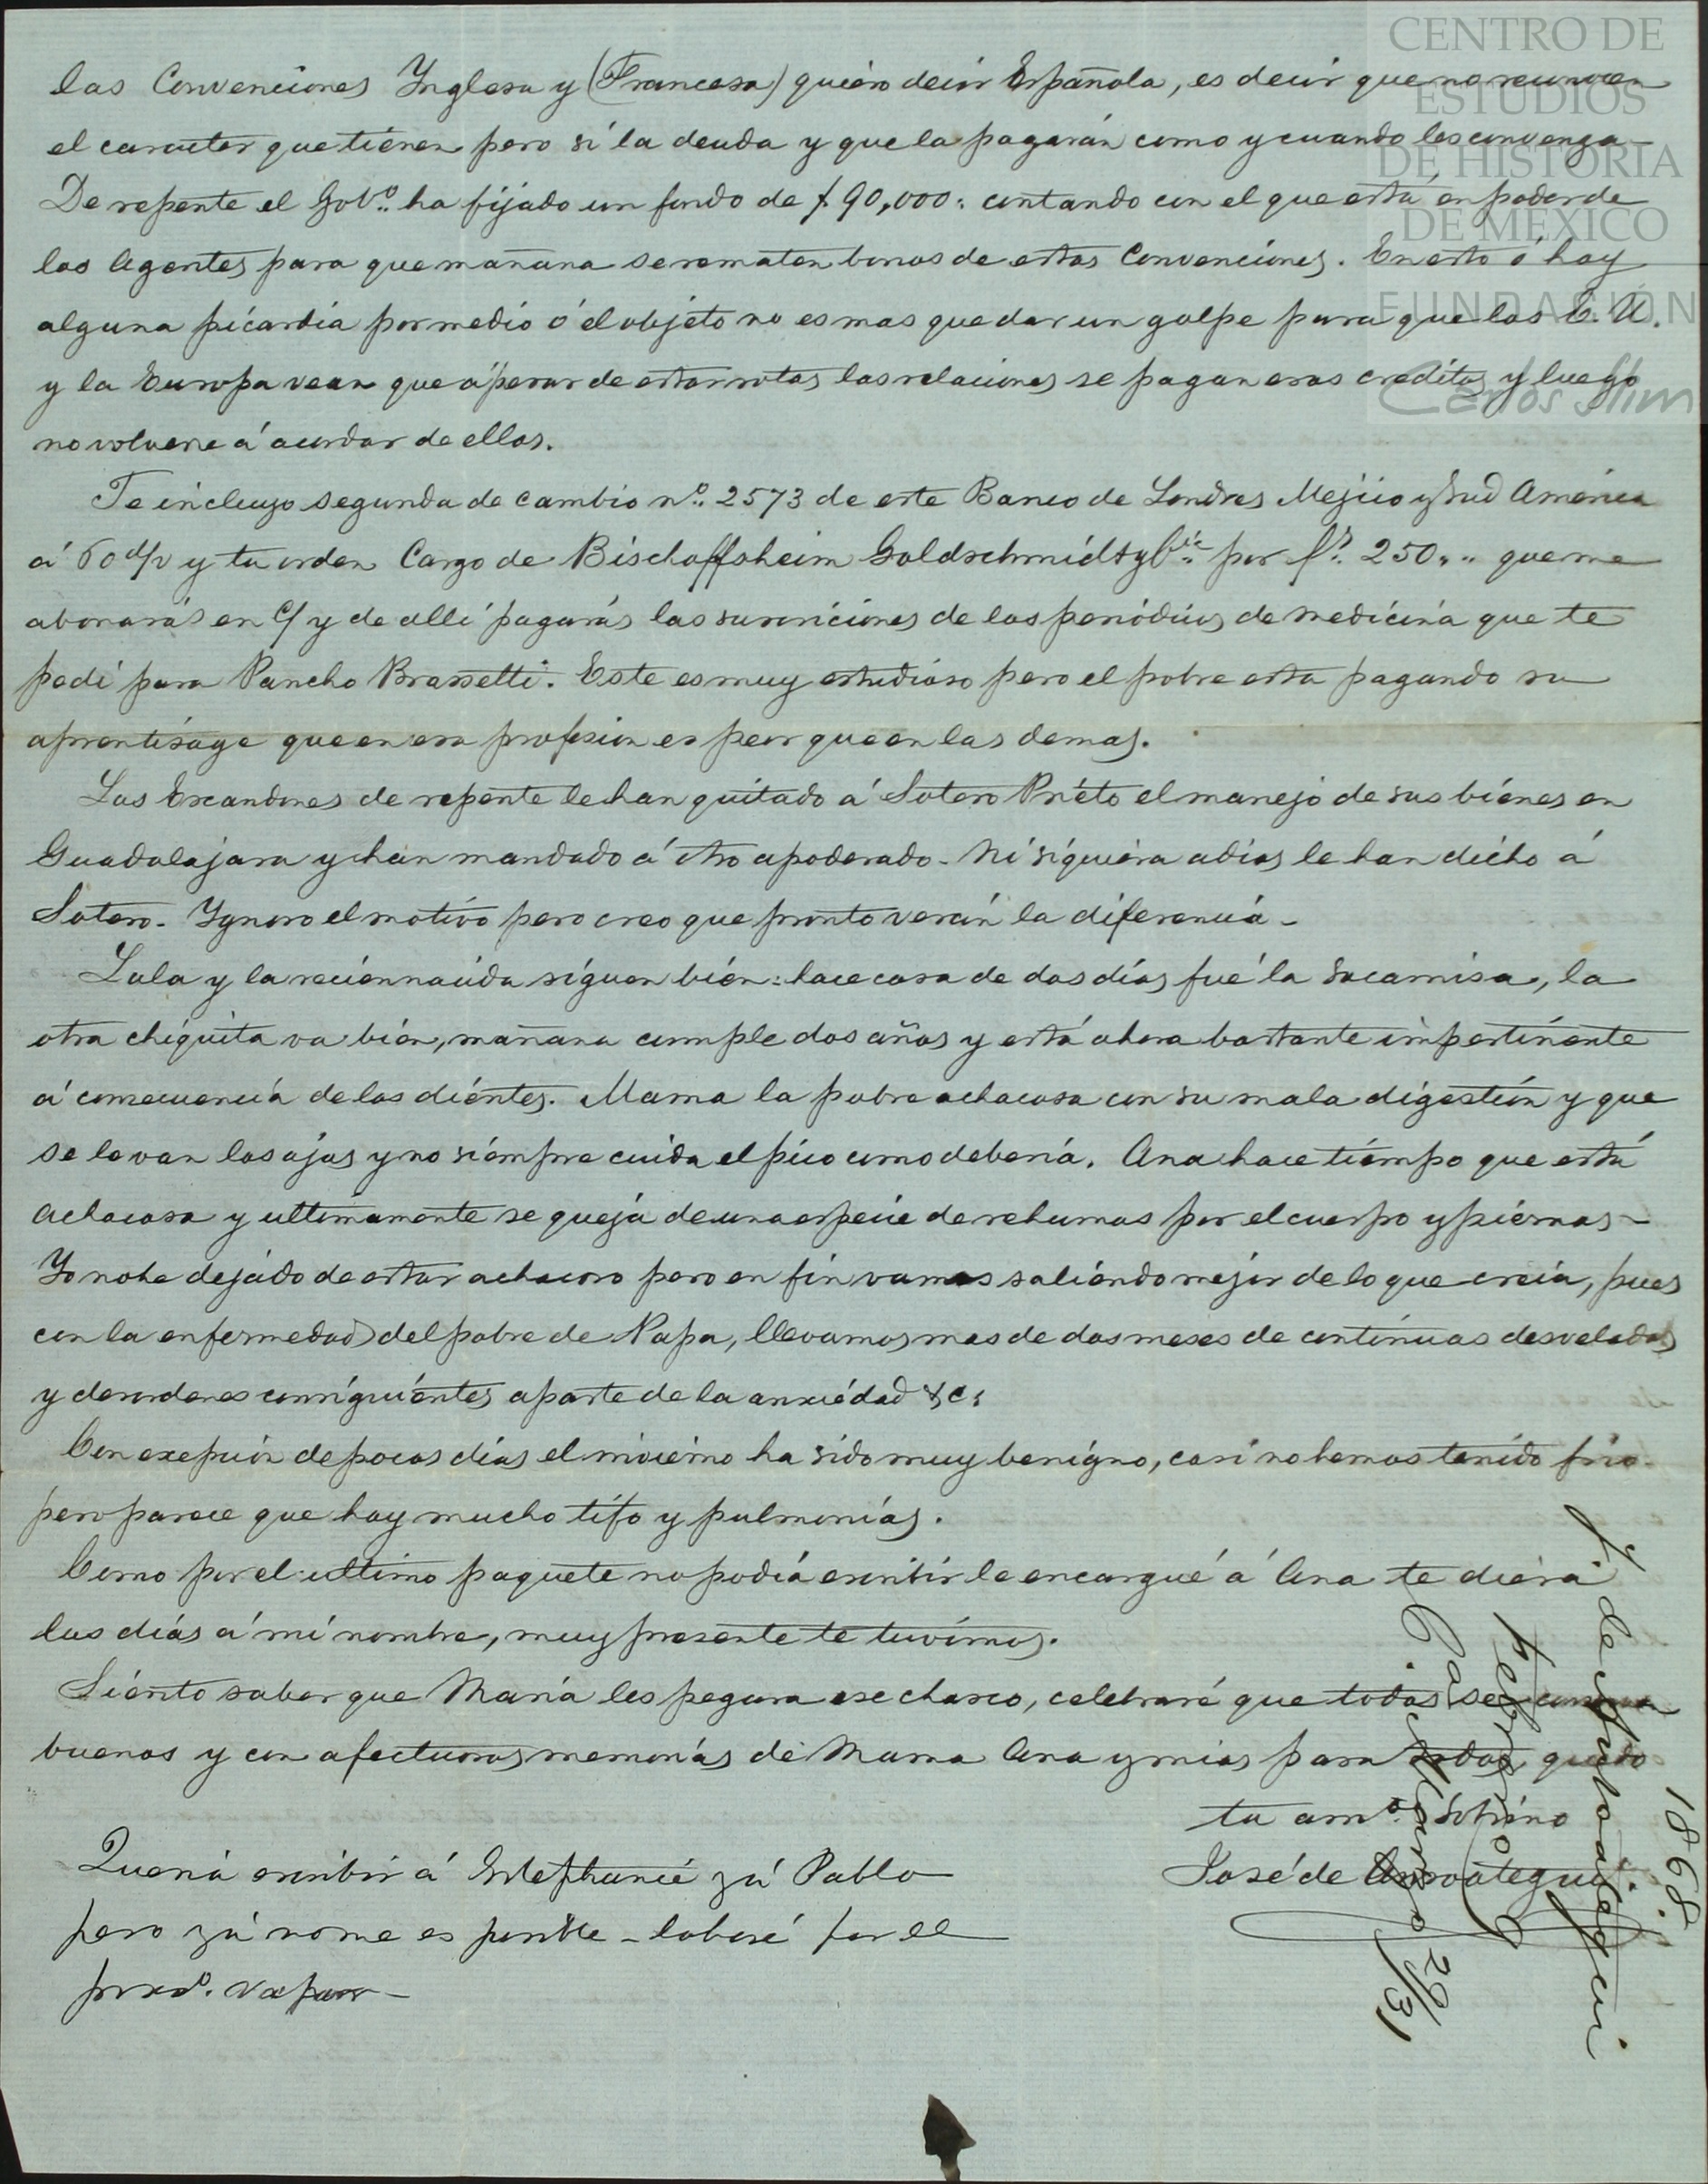 las Convenciones Ynglesa y (Francesa) quiero decir Española, es decir que no reconocen
el caracter que tienen pero si la deuda y que la pagarán como y cuando les convenga_
De repente el Gobº. ha fijado un fondo de $ 90,000: contando con el que está en poder de
los Agentes para que mañana se rematen bonos de estas Convenciones. En esto ó hay
alguna picardia por medio ó el objeto no es mas que dar un golpe para que los E. U.
y la Europa vean que á pesar de estar rotas las relaciones se pagan esos creditos y luego
no volverse á acordar de ellos.
Te incluyo segunda de cambio nº. 2573 de este Banco de Londres Mejico y Sud America
á 60 d/v y tu orden Cargo de Bischoffsheim Goldschmidt y Cia. por £s. 250.,, que me
abonarás en C/ y de alli pagarás las suscriciones de los periódicos de medicina que te
pedi para Pancho Brassetti. Este es muy estudioso pero el pobre esta pagando su
aprentisage que en esa profesion es peor que en las demas.
Los Escandones de repente le han quitado á Sotero Prieto el manejo de sus bienes en
Guadalajara y han mandado á otro apoderado_ Ni siquiera adios le han dicho á
Sotero_ Ygnoro el motivo pero creo que pronto verán la diferencia_
Lola y la recien nacida siguen bien: hace cosa de dos dias fué la sacamisa, la
otra chiquita va bien, mañana cumple dos años y está ahora bastante impertinente
á consecuencia de los dientes. Mama la pobre achacosa con su mala digestion y que
se le van los ojos y no siempre cuida el pico como deberia. Ana hace tiempo que está
achacosa y ultimamente se queja de una especie de rehumas por el cuerpo y piernas_
Yo no he dejado de estar achacoso pero en fin vamos saliendo mejor de lo que creia, pues
con la enfermedad del pobre de Papa, llevamos mas de dos meses de continuas desveladas
y desordenes consiguientes aparte de la ansiedad &c:
Con exepcion de pocos dias el invierno ha sido muy benigno, casi no hemos tenido frio
pero parece que hay mucho tifo y pulmonias.
Como por el ultimo paquete no podia escribir le encargué á Ana te diera
los dias á mi nombre, muy presente te tuvimos.
Siento saber que Maria les pegara ese chasco, celebraré que todos se
buenos y con afectuosas memorias de Mama Ana y mias para todos quedo
tu amº. Sobrino
José de Ansoategui
Queria escribir á Stephanie y á Pablo
pero ya no me es posible _ lo haré por el
proxº. vapor_
J. de Ansoategui
Febrero 9
1868.